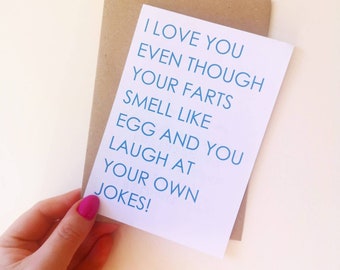 I LOVE YOU
EVEN THOUGH
YOUR FARTS
SMELL LIKE
EGG AND YOU
LAUGH AT
YOUR OWN
JOKES!